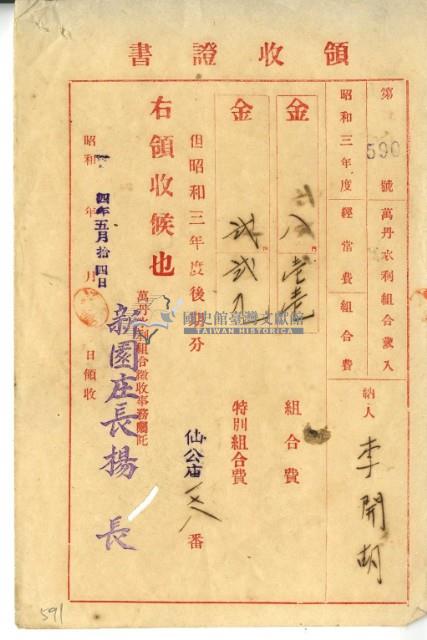 領收證書
第 590 號 萬丹水利組合歲入
昭和三年度 經常費 組合費
納人 李開胡
金 組合費
金 特別組合費
但昭和三年度後期分 仙公庙 番
右領收候也
昭和 四年五月拾四日
年 月 日領收
萬丹水利組合徵收事務囑託
新園庄長揚 長
國史館臺灣文獻館
TAIWAN HISTORICA
591